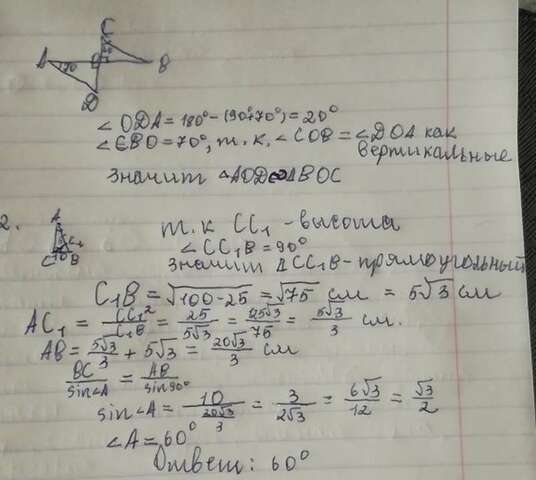 C
A
O
B
70
D
∠ODA = 180° - (90°+70°) = 20°
∠CBO = 70°, т.к. ∠COB = ∠DOA как
вертикальные
значит △AOD ∞ △BOC
2.
A
C₁
C
10
B
т.к CC₁ - высота
∠CC₁B = 90°
значит △CC₁B - прямоугольный
C₁B = √(100-25) = √75 см = 5√3 см
AC₁ = CC₁²/C₁B = 25/5√3 = 25√3/75 = 5√3/3 см.
AB = 5√3/3 + 5√3 = 20√3/3 см
BC/sin∠A = AB/sin90°
sin∠A = 10/(20√3/3) = 3/2√3 = 6√3/12 = √3/2
∠A = 60°
Ответ: 60°